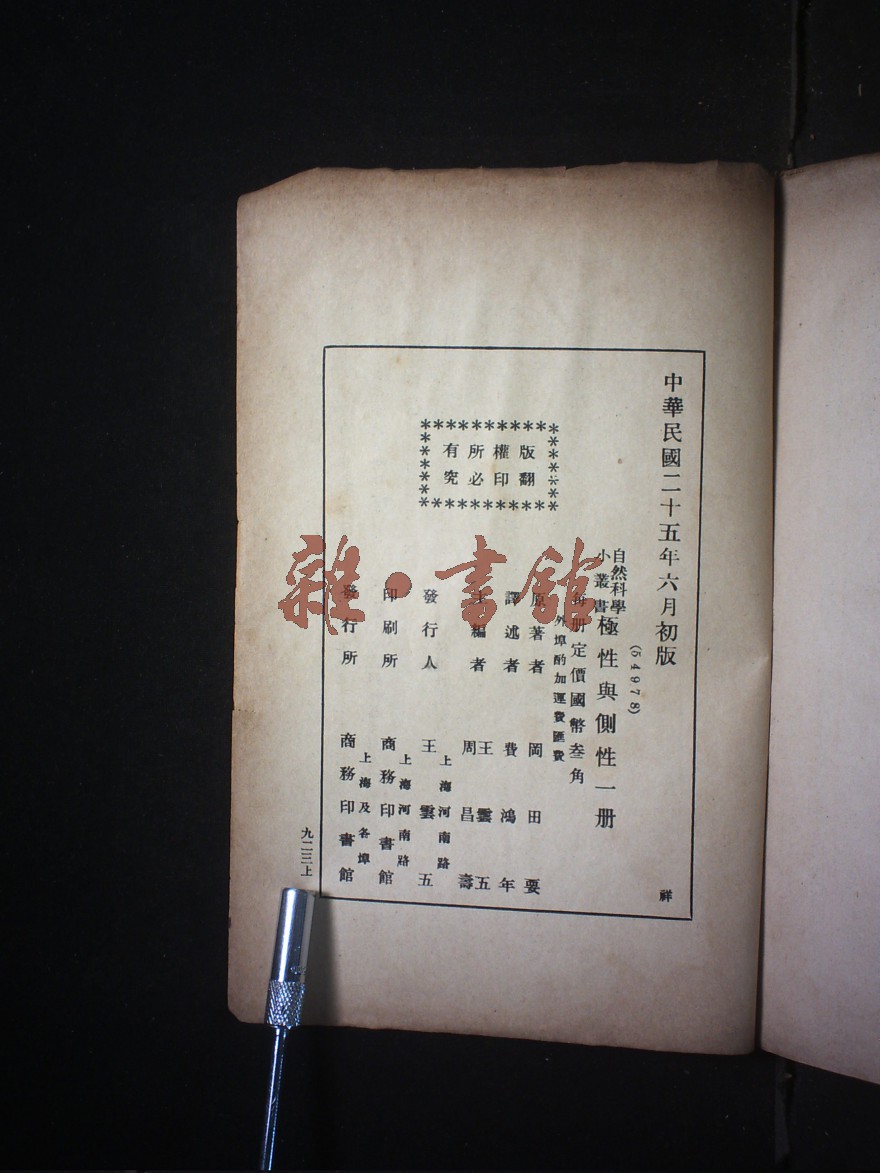 中華民國二十五年六月初版
(54978)
自然科學
小叢書
極性與側性一册
每册定價國幣叁角
外埠酌加運費匯費
原著者 岡田要
譯述者 費鴻年
主編者 王雲五
周昌壽
發行人 王雲五
上海河南路
印刷所 商務印書館
上海河南路
發行所 商務印書館
上海及各埠
版權所有
翻印必究
祥
九二三上
雜·書館